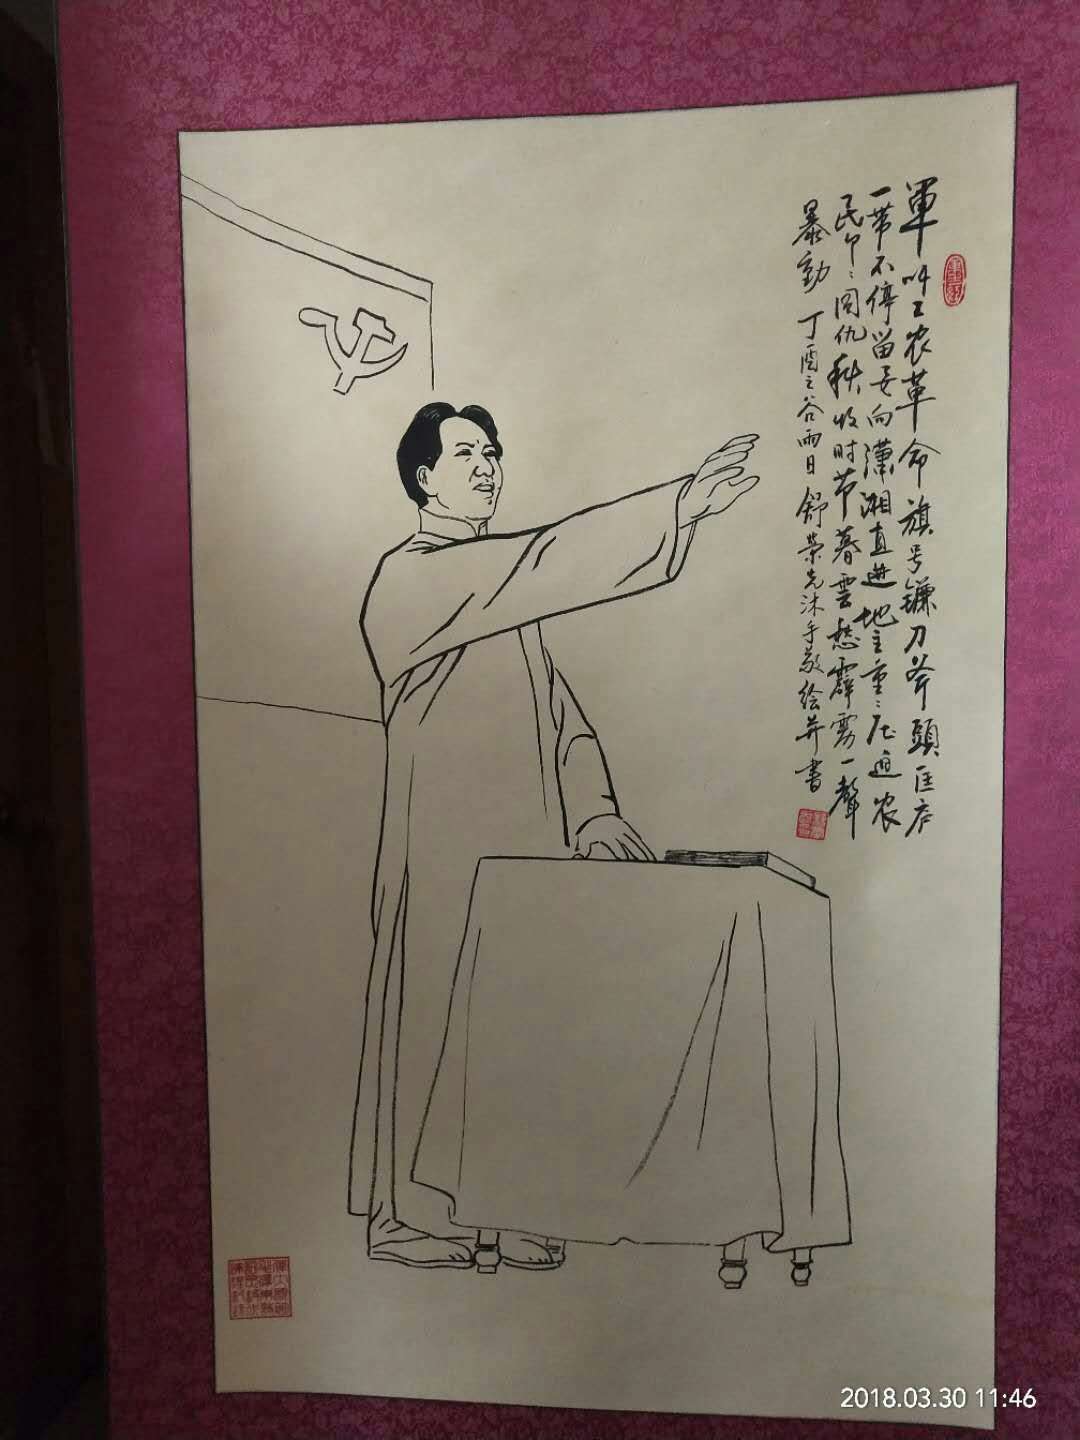 軍叫工农革命旗号镰刀斧頭匡庐
一带不停留要向瀟湘直進地主重〻压迫农
民个〻同仇秋收时节暮雲愁霹雳一聲
暴動 丁酉之谷雨日舒荣先沐手敬绘并書
2018.03.30 11:46